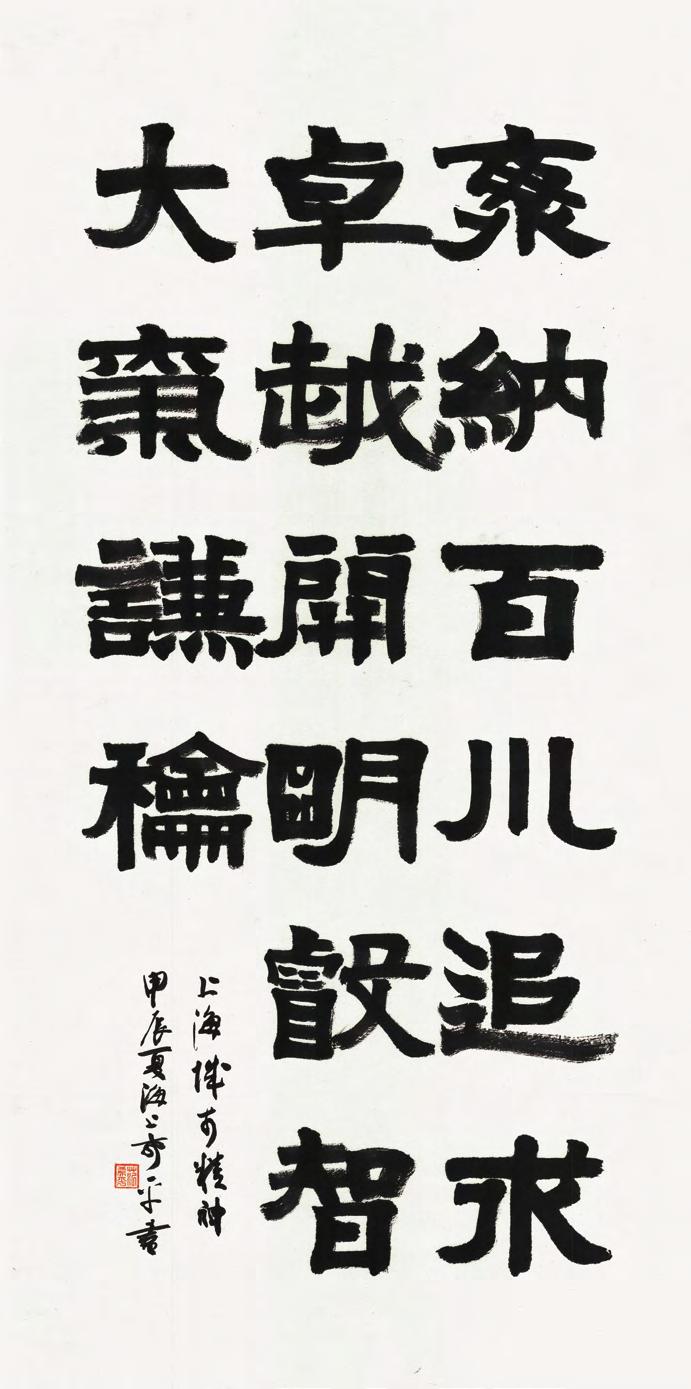 納百川追求
卓越開明叡智
大氣謙龢
上海城市精神
甲辰夏海上平書